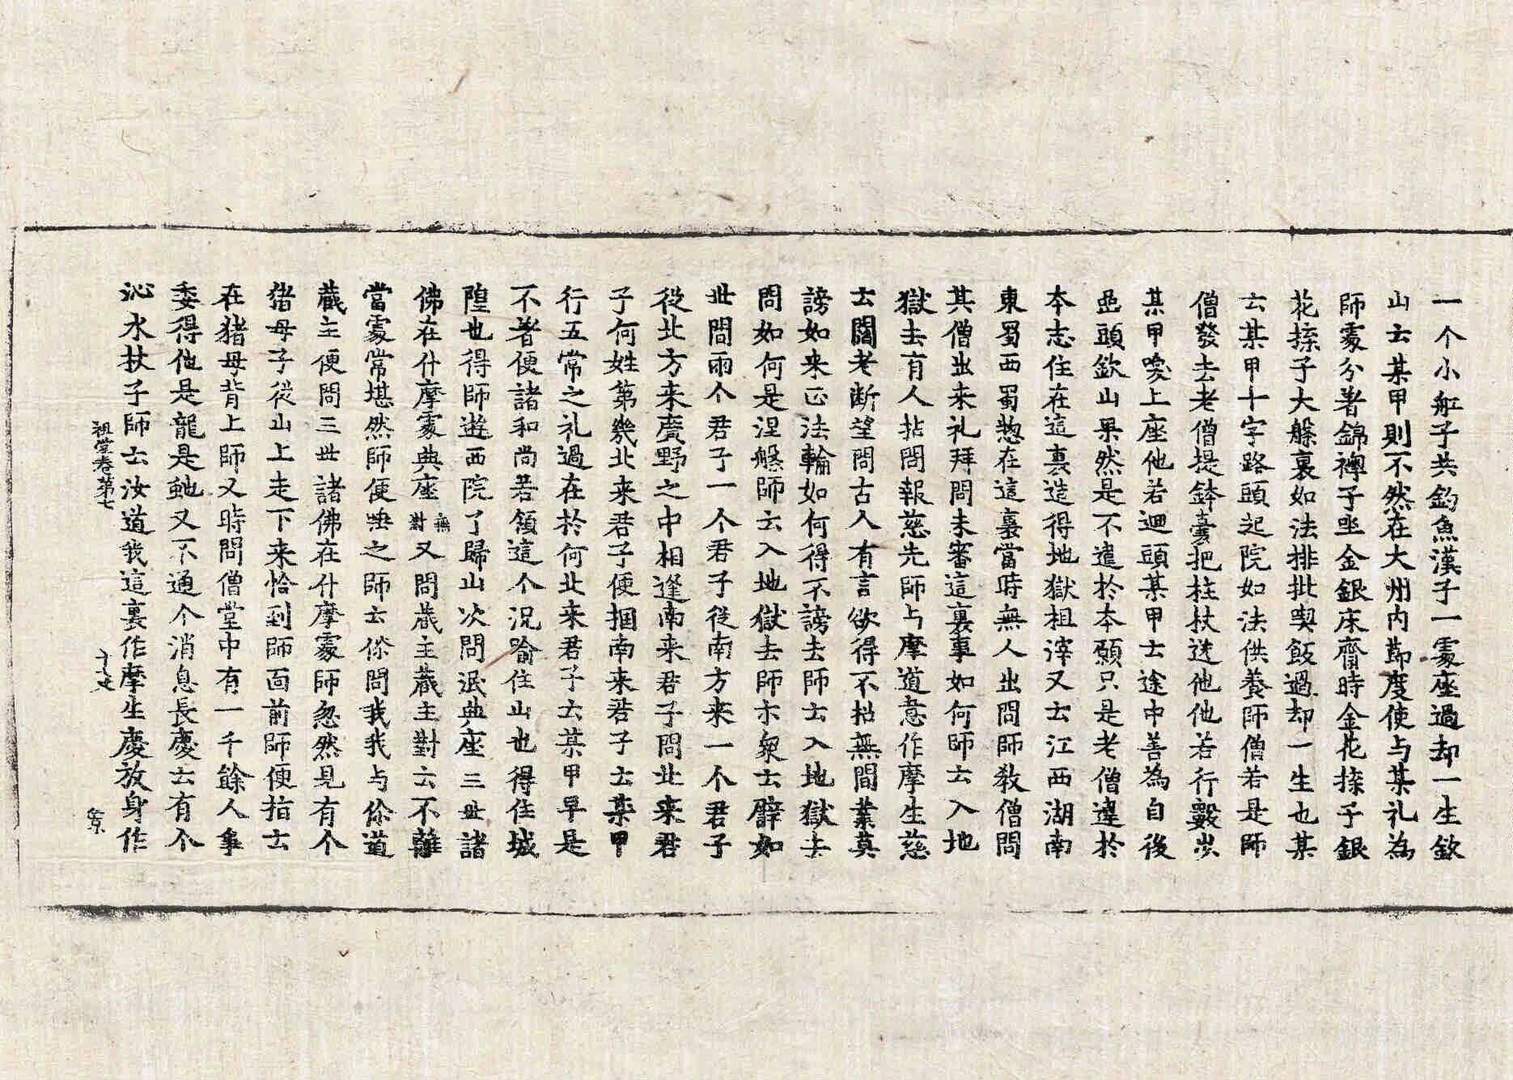 一个小舡子共釣魚漢子一處座過却一生欽
山云某甲則不然在大州内節度使与某礼為
師處分著錦襖子坐金銀床齊時金花㨍子銀
花㨍子大躲裏如法排批喫飯過却一生也某
云某甲十字路頭起院如法供養師僧若是師
僧發去老僧提鉢囊把柱杖送他他若行數步
某甲喚上座他若迴頭某甲云途中善為自後
嵒頭欽山果然是不違於本願只是老僧違於
本志住在這裏造得地獄柤滓又云江西湖南
東蜀西蜀惣在這裏當時無人出問師教僧問
其僧出来礼拜問未審這裏事如何師云入地
獄去有人拈問報慈先師与摩道意作摩生慈
云閻老断望問古人有言欲得不招無間業莫
謗如来正法輪如何得不謗去師云入地獄去
問如何是涅槃師云入地獄去師示衆云譬如
世間兩个君子一个君子從南方来一个君子
從北方来廣野之中相逢南来君子問北来君
子何姓第幾北来君子便掴南来君子云某甲
行五常之礼過在於何北来君子云某甲早是
不著便諸和尚若領這个況喻住山也得住城
隍也得師遊西院了歸山次問泯典座三世諸
佛在什摩處典座無對又問蔵主蔵主對云不離
當處常堪然師便唾之師云你問我我与你道
蔵主便問三世諸佛在什摩處師忽然見有个
猪母子從山上走下来恰到師面前師便指云
在猪母背上師又時問僧堂中有一千餘人事
委得他是龍是虵又不通个消息長慶云有个
沁水扶子師云汝道我這裏作摩生慶放身作
祖堂卷第七